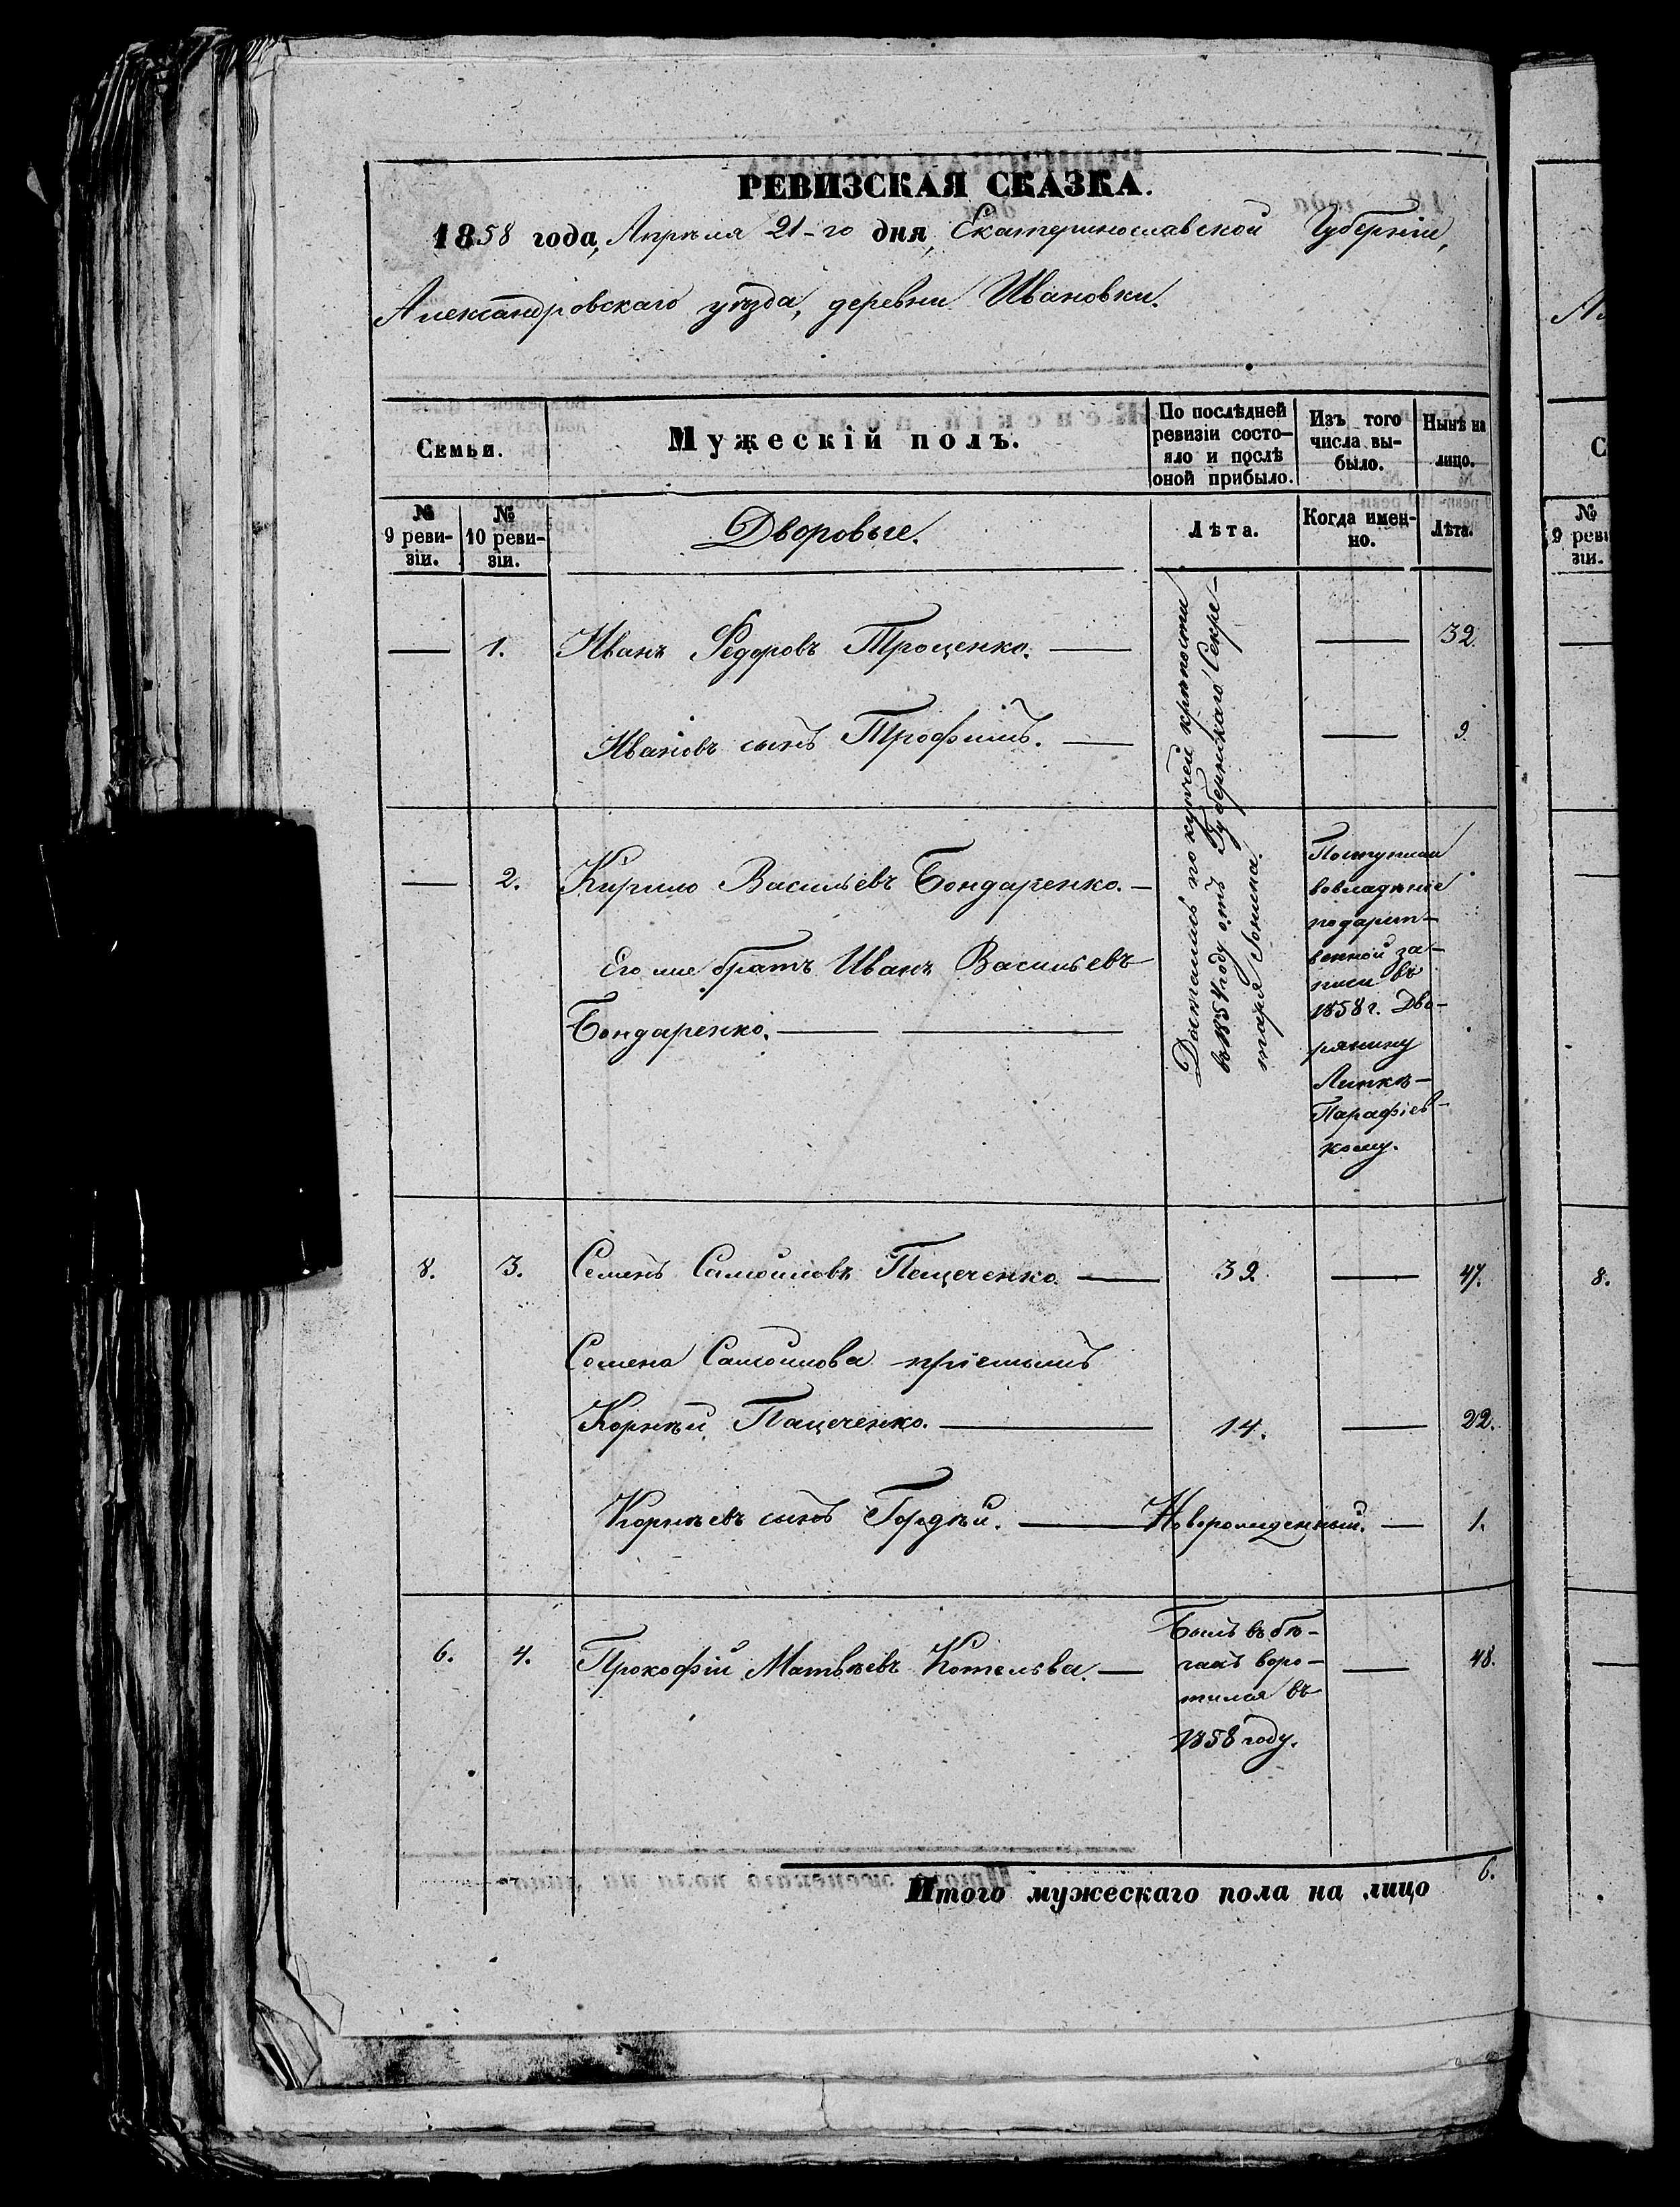 РЕВИЗСКАЯ СКАЗКА.
1858 года, Апрѣля 21-го дня, Екатеринославской Губерніи,
Александровскаго уѣзда, деревни Ивановки.
Семьи.
Мужескій полъ.
По послѣдней
ревизіи состо-
яло и послѣ
оной прибыло.
Изъ того
числа вы-
было.
Нынѣ на
лицо.
№
9 реви-
зіи.
№
10 реви-
зіи.
Дворовые.
Лѣта.
Когда имен-
но.
Лѣта.
— 1. Иванъ Федоровъ Троценко. — — 32.
Ивановъ сынъ Трофимъ. — — 9
Достались по купчей крѣпости
въ 1854 году отъ Губернскаго Секре-
таря
— 2. Кирило Васильевъ Бондаренко. —
Его же братъ Иванъ Васильевъ
Бондаренко. — —
Поступили
во владѣніе
по дарст-
венной за-
писи въ
1858 г. Дво-
рянину
Парафіев-
кому.
8. 3. Семенъ Самойловъ Пащеченко — 39. — 47.
Семена Самойлова пріемышъ
Корнѣй Пащеченко. — 14. — 22.
Корнѣевъ сынъ Гордѣй. — Новорожденный. — 1.
6. 4. Прокофій Матвѣевъ Котелева. — — 48.
Былъ въ бѣ-
гахъ воро-
тился въ
1858 году.
Итого мужескаго пола на лицо 6.
№
9 реви
зіи.
8.